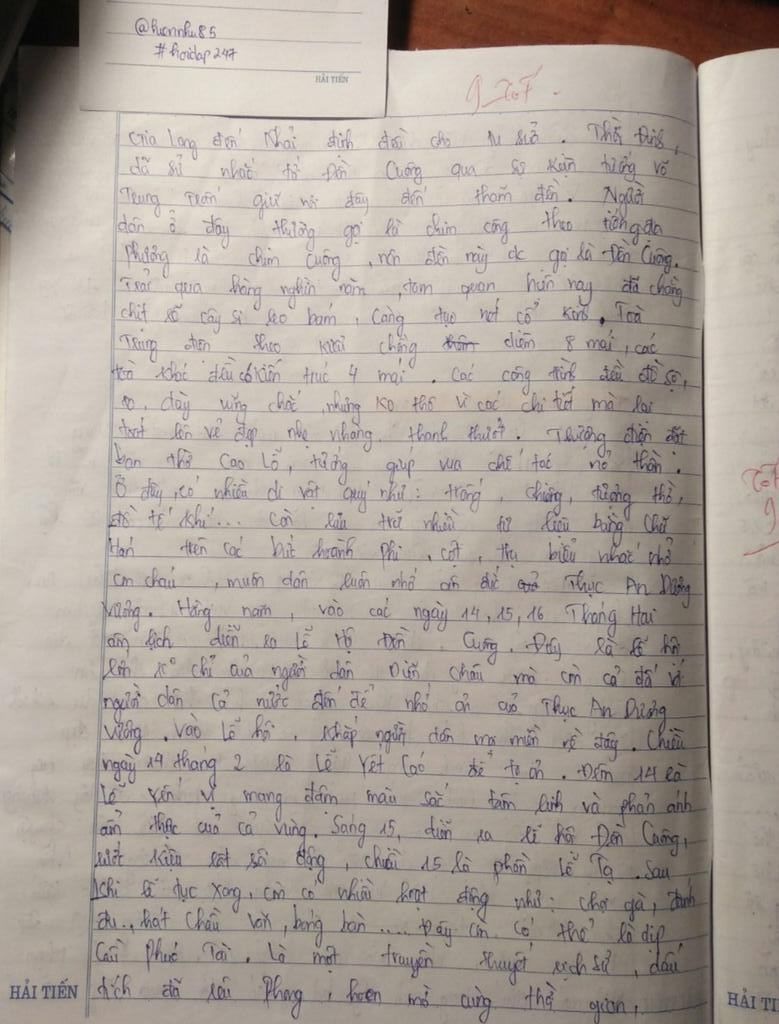 @huonnhu85
#hoidap247
HẢI TIẾN
9 Tốt
Gia Long đến Khải định đều cho tu sửa. Thời Đinh,
đã sử nhắc tới Đền Cuông qua sự kiện tướng võ
Trung giữ nơi đây đến thăm đền. Người
dân ở đây thường gọi là chim công theo tiếng địa
phương là chim Cuông, nên đền này dc gọi là Đền Cuông.
Trải qua hàng nghìn năm, tam quan hiện nay đã chằng
chịt rễ cây si leo bám, càng tạo nét cổ kính. Toà
Trung điện theo kiểu chồng diêm 8 mái, các
toà khác đều có kiến trúc 4 mái. Các công trình đều đồ sộ,
to, dày vững chắc, nhưng ko thô vì các chi tiết mà lại
toát lên vẻ đẹp nhẹ nhàng thanh thoát. Thượng điện đặt
ban thờ Cao Lỗ, tướng giúp vua chế tác nỏ thần.
Ở đây, có nhiều di vật quý như: trống, chiêng, tượng thờ,
đồ tế khí... còn lưu trữ nhiều tư liệu bằng chữ
Hán trên các bức hoành phi, cột, trụ biểu nhắc nhở
con cháu, muôn dân luôn nhớ ơn đức Thục An Dương
Vương. Hàng năm, vào các ngày 14, 15, 16 Tháng Hai
âm lịch diễn ra Lễ Hội Đền Cuông. Đây là lễ hội
lớn ko chỉ của người dân Diễn Châu mà còn cả đối với
người dân cả nước đến để nhớ ơn của Thục An Dương
Vương. Vào Lễ hội, khắp người dân mọi miền về đây. Chiều
ngày 14 tháng 2 là Lễ Yết Cáo để tạ ơn. Đêm 14 là
Lễ Yến vị mang đậm màu sắc tâm linh và phản ánh
ẩm thực của cả vùng. Sáng 15, diễn ra lễ hội Đền Cuông,
rước kiệu rất sôi động, chiều 15 là phần Lễ Tạ. Sau
khi lễ tục xong, còn có nhiều hoạt động như: chọi gà, đánh
đu, hát chầu văn, bóng bàn.... Đây còn có thể là dịp
Cầu Phước Tài. Là một truyền thuyết lịch sử, dấu
tích đã rêu phong, hoen mờ cùng thời gian,
HẢI TIẾN
Tốt
9
HẢI TI